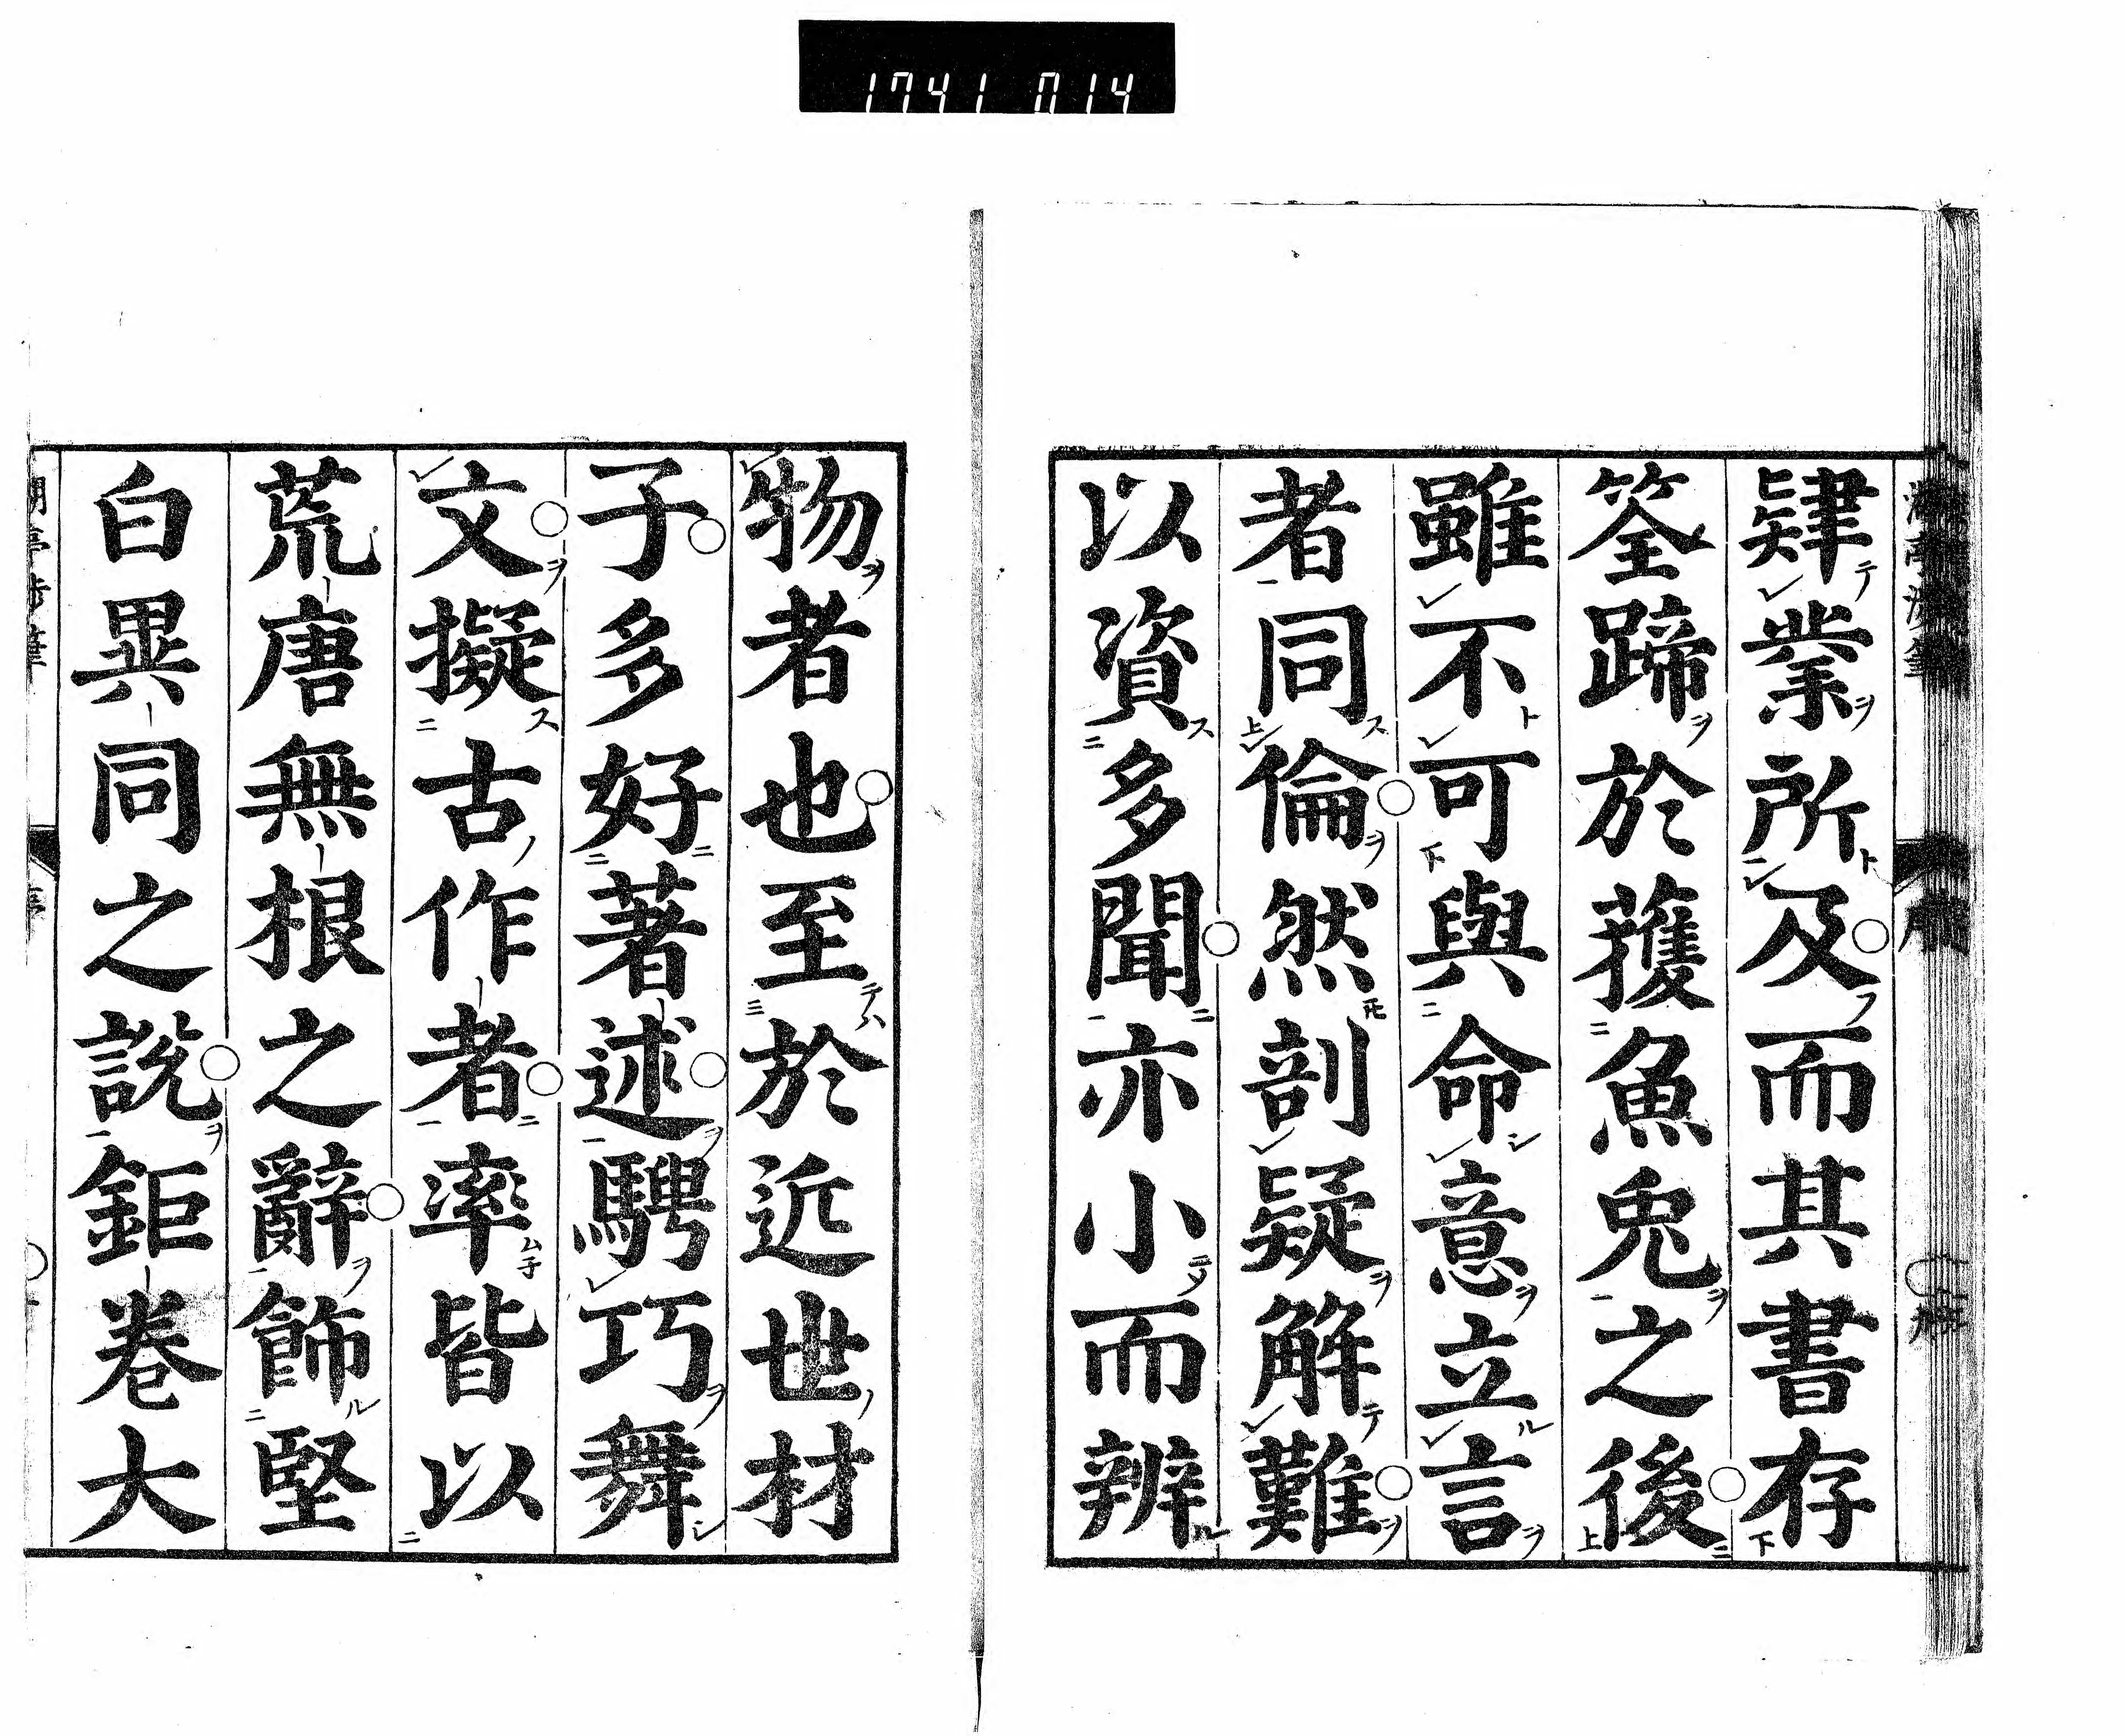 1741 014
肄業所及而其書存
筌蹄於獲魚兎之後
雖不可與命意立言
者同倫然剖疑解難
以資多聞亦小而辨
物者也至於近世材
子多好著述騁巧舞
文擬古作者率皆以
荒唐無根之辭飾堅
白異同之說鉅卷大